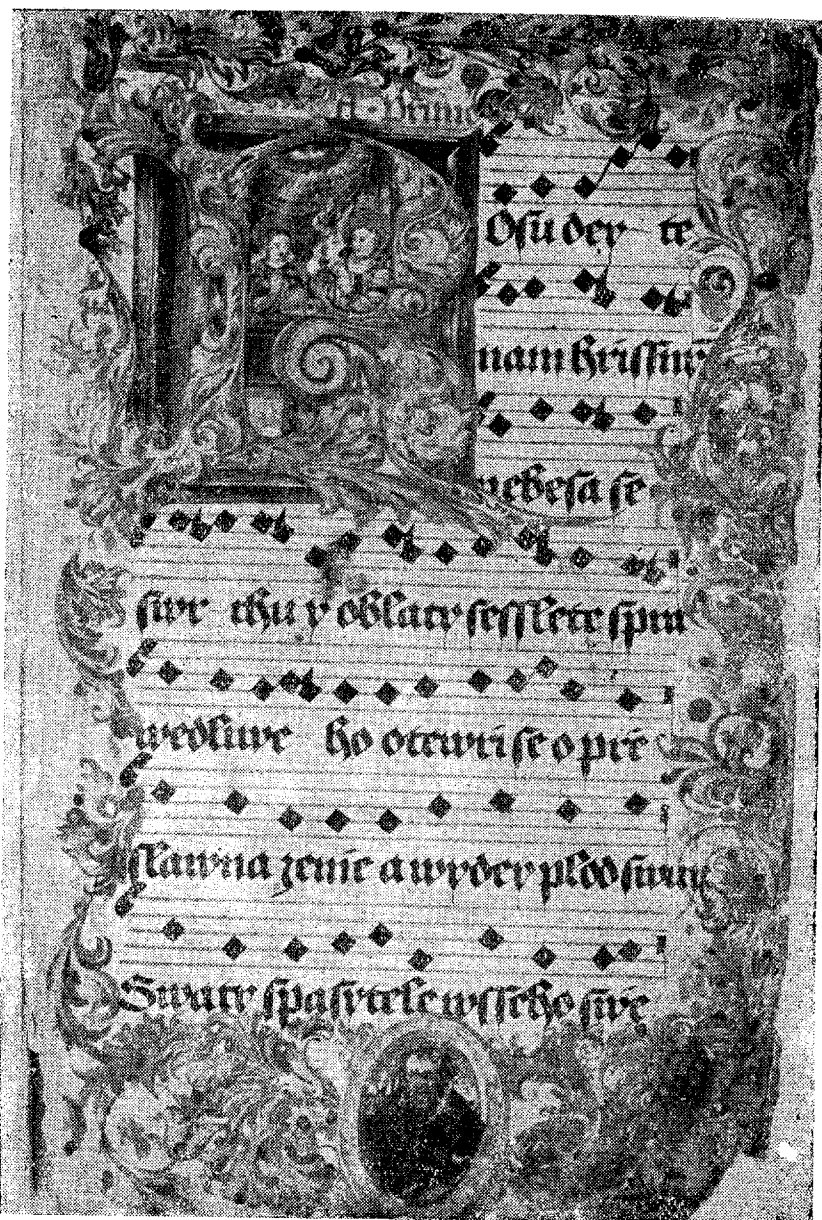 Osu dey te
nam hrissnie
nebesa se
swe thu y oblacy sesslete spra
wedliwe ho otewri se o pre
slawna zemie a wydey plod swuoy
Swaty spasytele wsseho swie